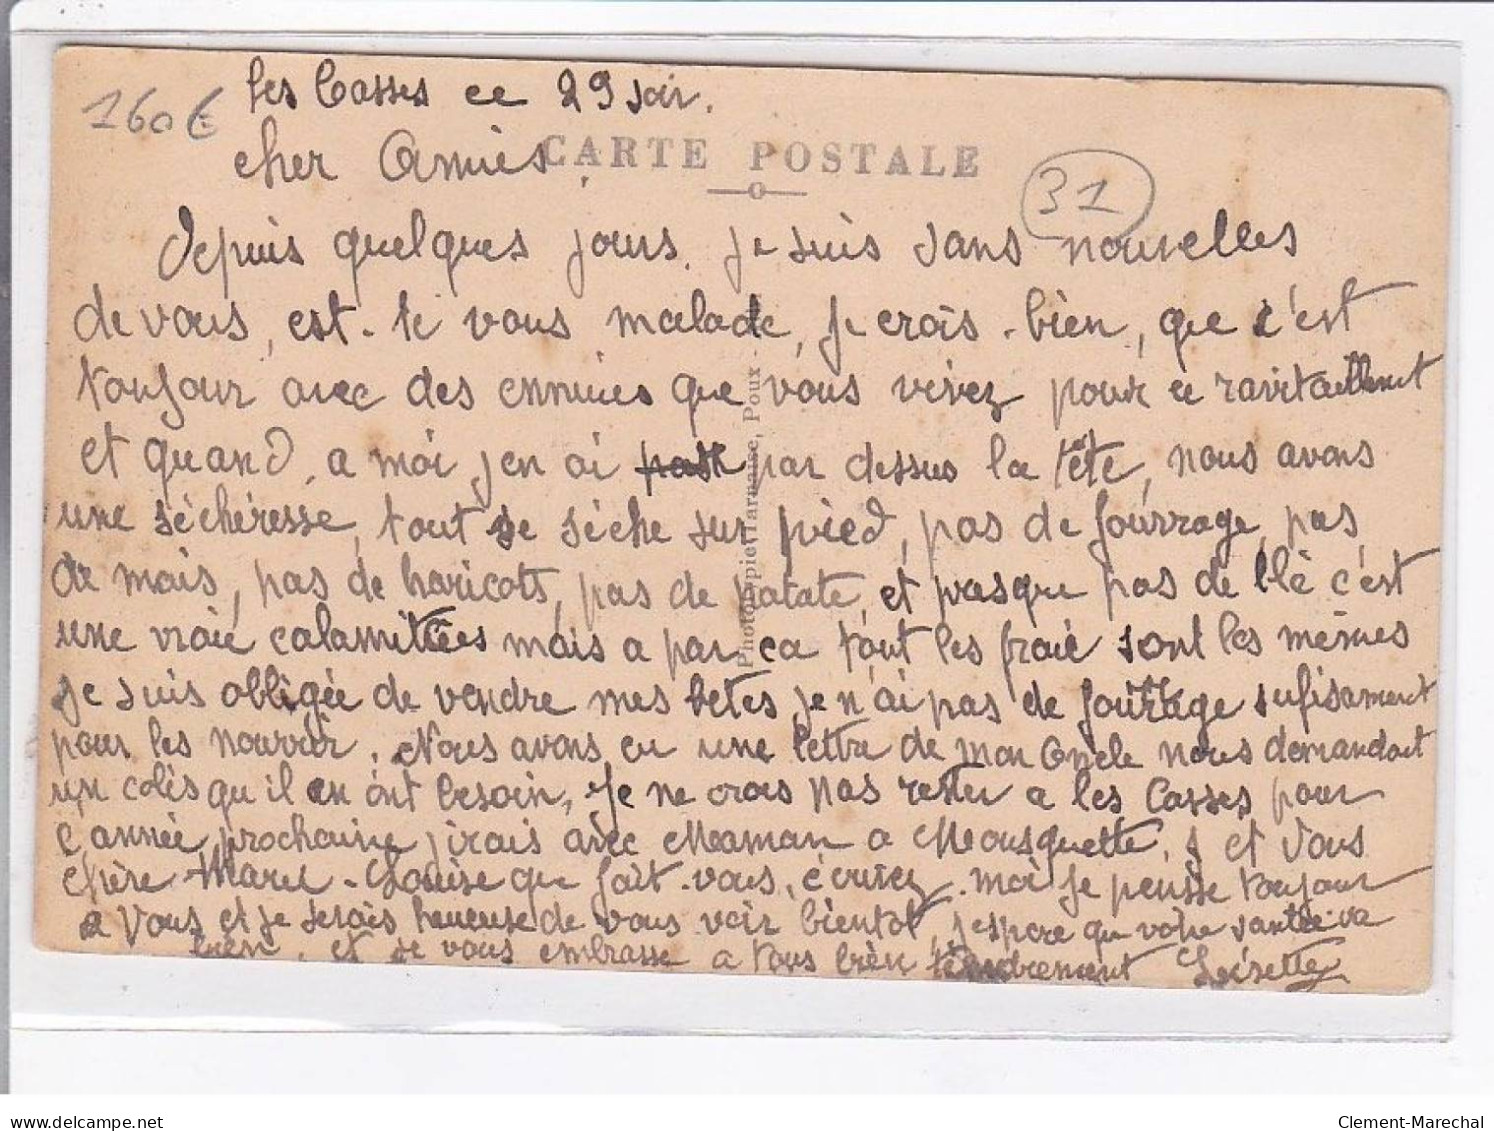 160€
les Casses ce 29 soir.
cher Amies
CARTE POSTALE
31
Depuis quelques jours. je suis sans nouvelles
de vous, est-te vous malade, je crois bien, que c'est
toujour avec des ennuies que vous vivez pour ce ravitaillement
et quand, a moi j'en ai par dessus la tête, nous avons
une sécheresse, tout se sèche sur pied, pas de fourrage, pas
de maïs, pas de haricots, pas de patate, et presque pas de blé c'est
une vraie calamitées mais a par ça tout les fraie sont les mêmes
je suis obligée de vendre mes betes je n'ai pas de fourrage sufisament
pour les nourrir. Nous avons eu une lettre de mon Oncle nous demandant
un colis qu'il en ont besoin, Je ne crois pas rester a les Casses pour
l'année prochaine j'irais avec Maman a Mousquette, et Vous
chère Marie-Louise que fait-vous, écrivez-moi je pensse toujour
a Vous et je serais heureuse de vous voir bientot, j'espere que votre santée va
bien. et je vous embrasse a tous bien tendrement Lisette
Phototypie Tarnaise, Poux -
delcampe.net
Clement-Marechal